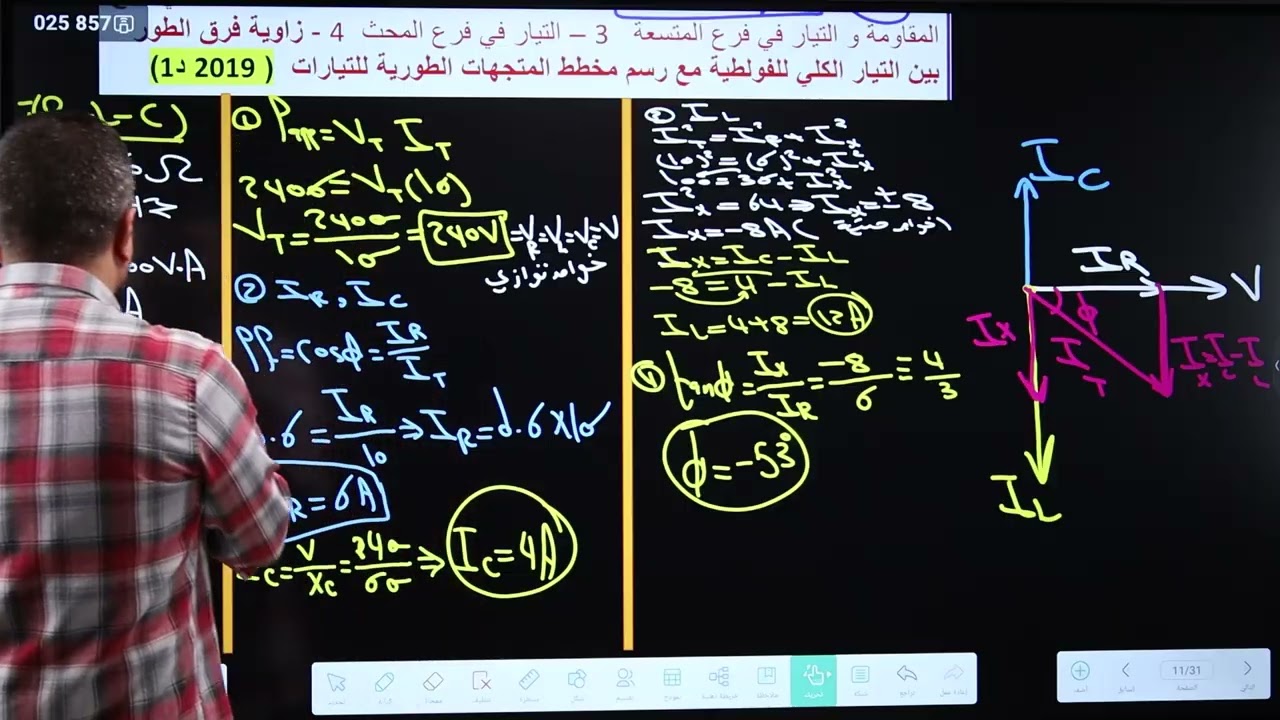 025 857
المقاومة و التيار في فرع المتسعة 3 – التيار في فرع المحث 4 - زاوية فرق الطور
بين التيار الكلي للفولطية مع رسم مخطط المتجهات الطورية للتيارات ( 2019 د1)
-C)
Ω
00V.A
A
① Papp = V_T I_T
2400 = V_T (10)
V_T = 2400/10 = 240V = V_R = V_L = V_C = V
خواص توازي
② I_R , I_C
Pf = cosϕ = I_R/I_T
0.6 = I_R/10 ⇒ I_R = 0.6 x 10
R = 6A
C = V/X_C = 240/60 ⇒ I_C = 4A
I_L
I_T² = I_R² + I_X²
(10)² = (6)² + I_X²
100 = 36 + I_X²
I_X² = 64 ⇒ I_X = ± 8
I_X = -8A
I_X = I_C - I_L
-8 = 4 - I_L
I_L = 4+8 = 12A
④ tanϕ = I_X/I_R = -8/6 = 4/3
ϕ = -53°
I_C
I_R
V
I_X
ϕ
I_T
I_X = I_C - I_L
I_L
11/31
الصفحة
السابق
التالي
أضف